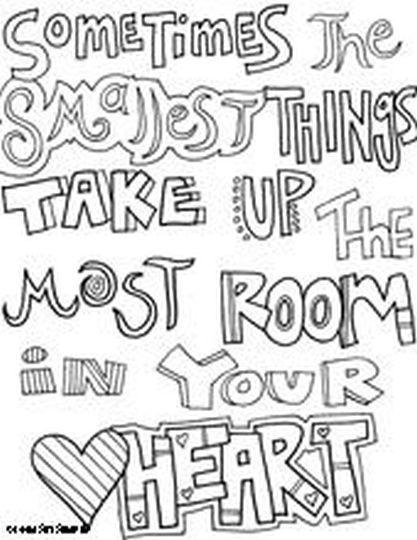 SOMETiMES The
SMallesT THINGS
TAKE UP THE
MOST ROOM
iN YOUR
HEART